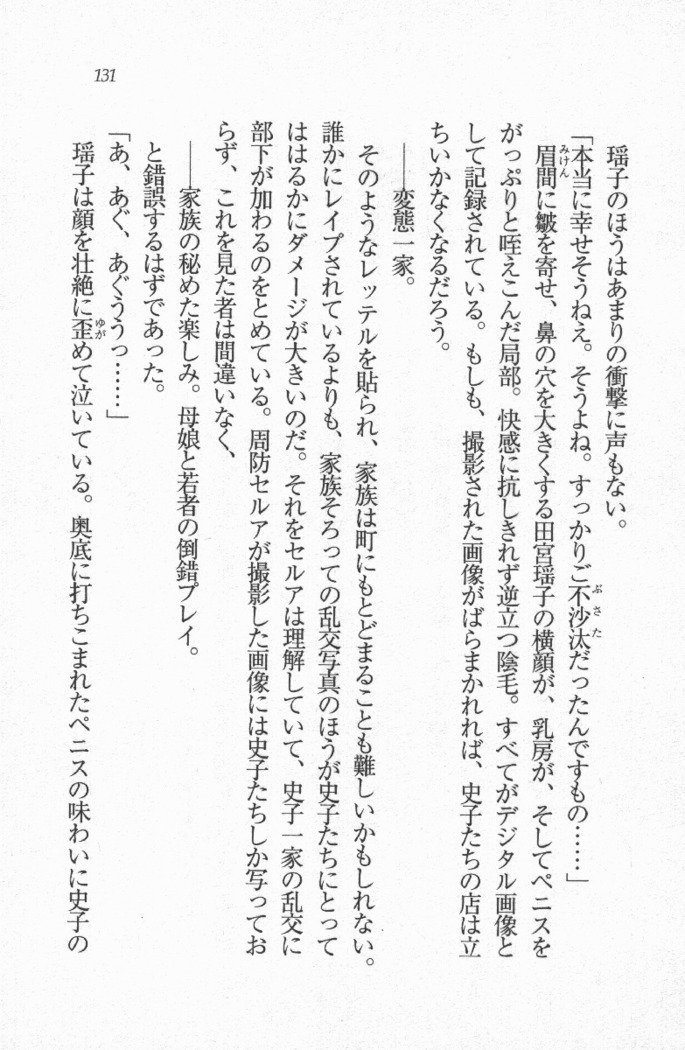 131
瑶子のほうはあまりの衝撃に声もない。
「本当に幸せそうねえ。そうよね。すっかりご不沙汰だったんですもの……」
眉間に皺を寄せ、鼻の穴を大きくする田宮瑶子の横顔が、乳房が、そしてペニスを
がっぷりと咥えこんだ局部。快感に抗しきれず逆立つ陰毛。すべてがデジタル画像と
して記録されている。もしも、撮影された画像がばらまかれれば、史子たちの店は立
ちいかなくなるだろう。
――変態一家。
そのようなレッテルを貼られ、家族は町にもとどまることも難しいかもしれない。
誰かにレイプされているよりも、家族そろっての乱交写真のほうが史子たちにとって
ははるかにダメージが大きいのだ。それをセルアは理解していて、史子一家の乱交に
部下が加わるのをとめている。周防セルアが撮影した画像には史子たちしか写ってお
らず、これを見た者は間違いなく、
――家族の秘めた楽しみ。母娘と若者の倒錯プレイ。
と錯誤するはずであった。
「あ、あぐ、あぐううっ……」
瑶子は顔を壮絶に歪めて泣いている。奥底に打ちこまれたペニスの味わいに史子の
みけん
ぶさた
ゆが